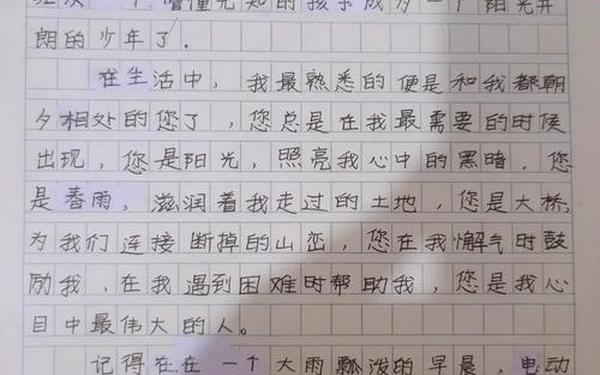 懵懂无知的孩子成为一个阳光开
朗的少年了.
在生活中，我最熟悉的便是和我都朝
夕相处的您了，您总是在我最需要的时候
出现，您是阳光，照亮我心中的黑暗.您
是春雨，滋润着我走过的土地，您是大桥,
为我们连接断掉的山峦，您在我懈气时鼓
励我，在我遇到困难时帮助我，您是我心
目中最伟大的人。
记得在在一个大雨瓢泼的早晨，电动